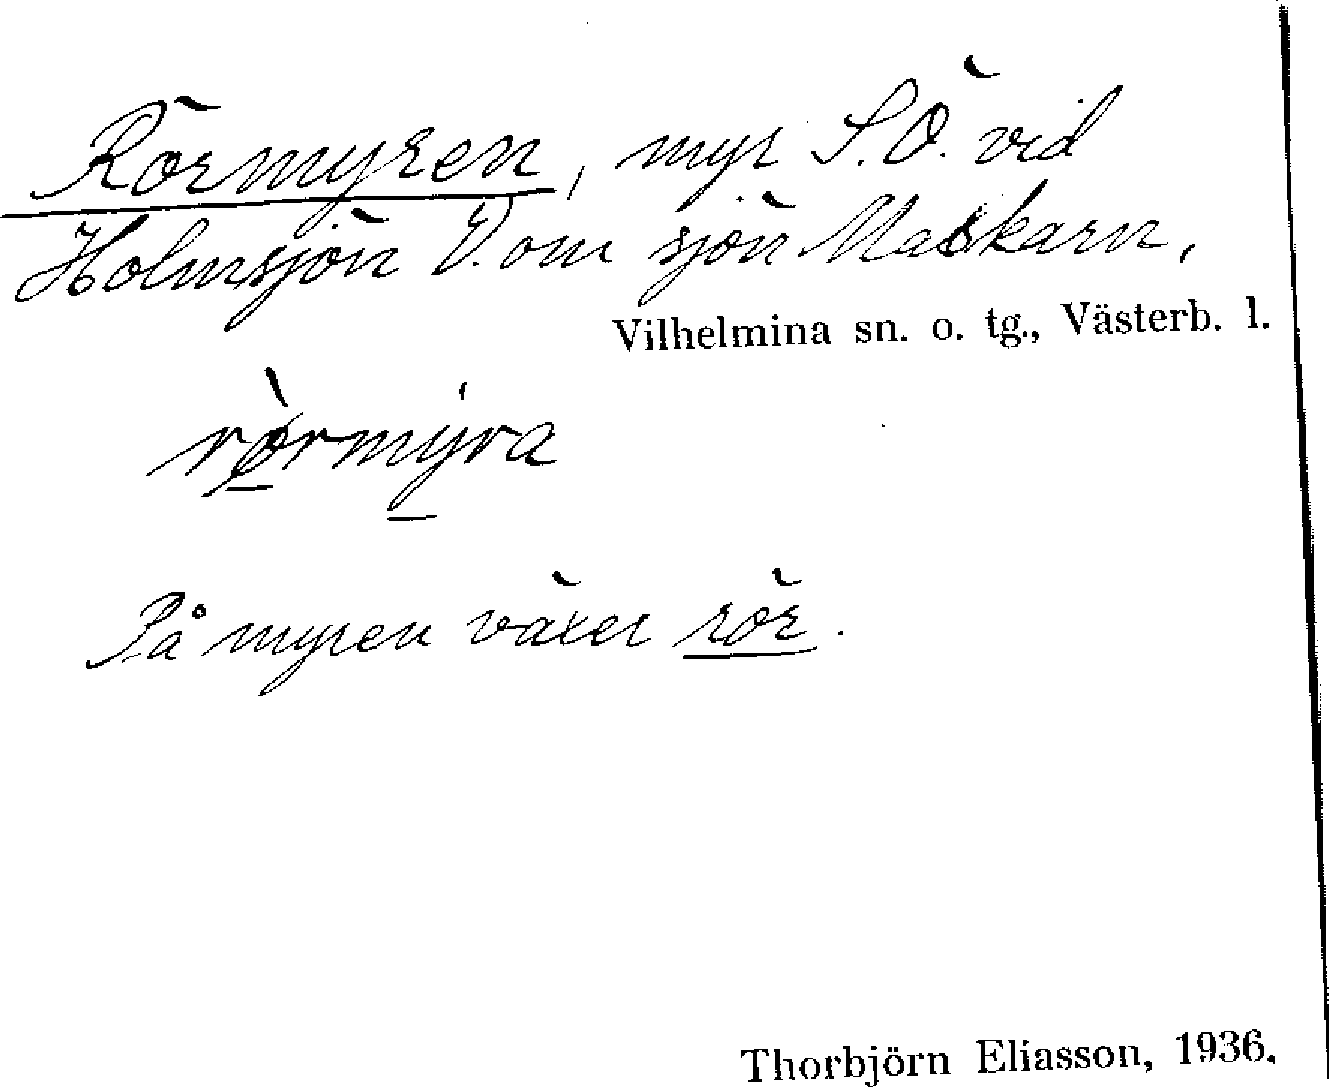 Rörmyren, myr S.Ö. vid
Holmsjön V. om sjön Maskarn,
Vilhelmina sn. o. tg., Västerb. l.
rø̀rmýra
På myren växer rör.
Thorbjörn Eliasson, 1936.